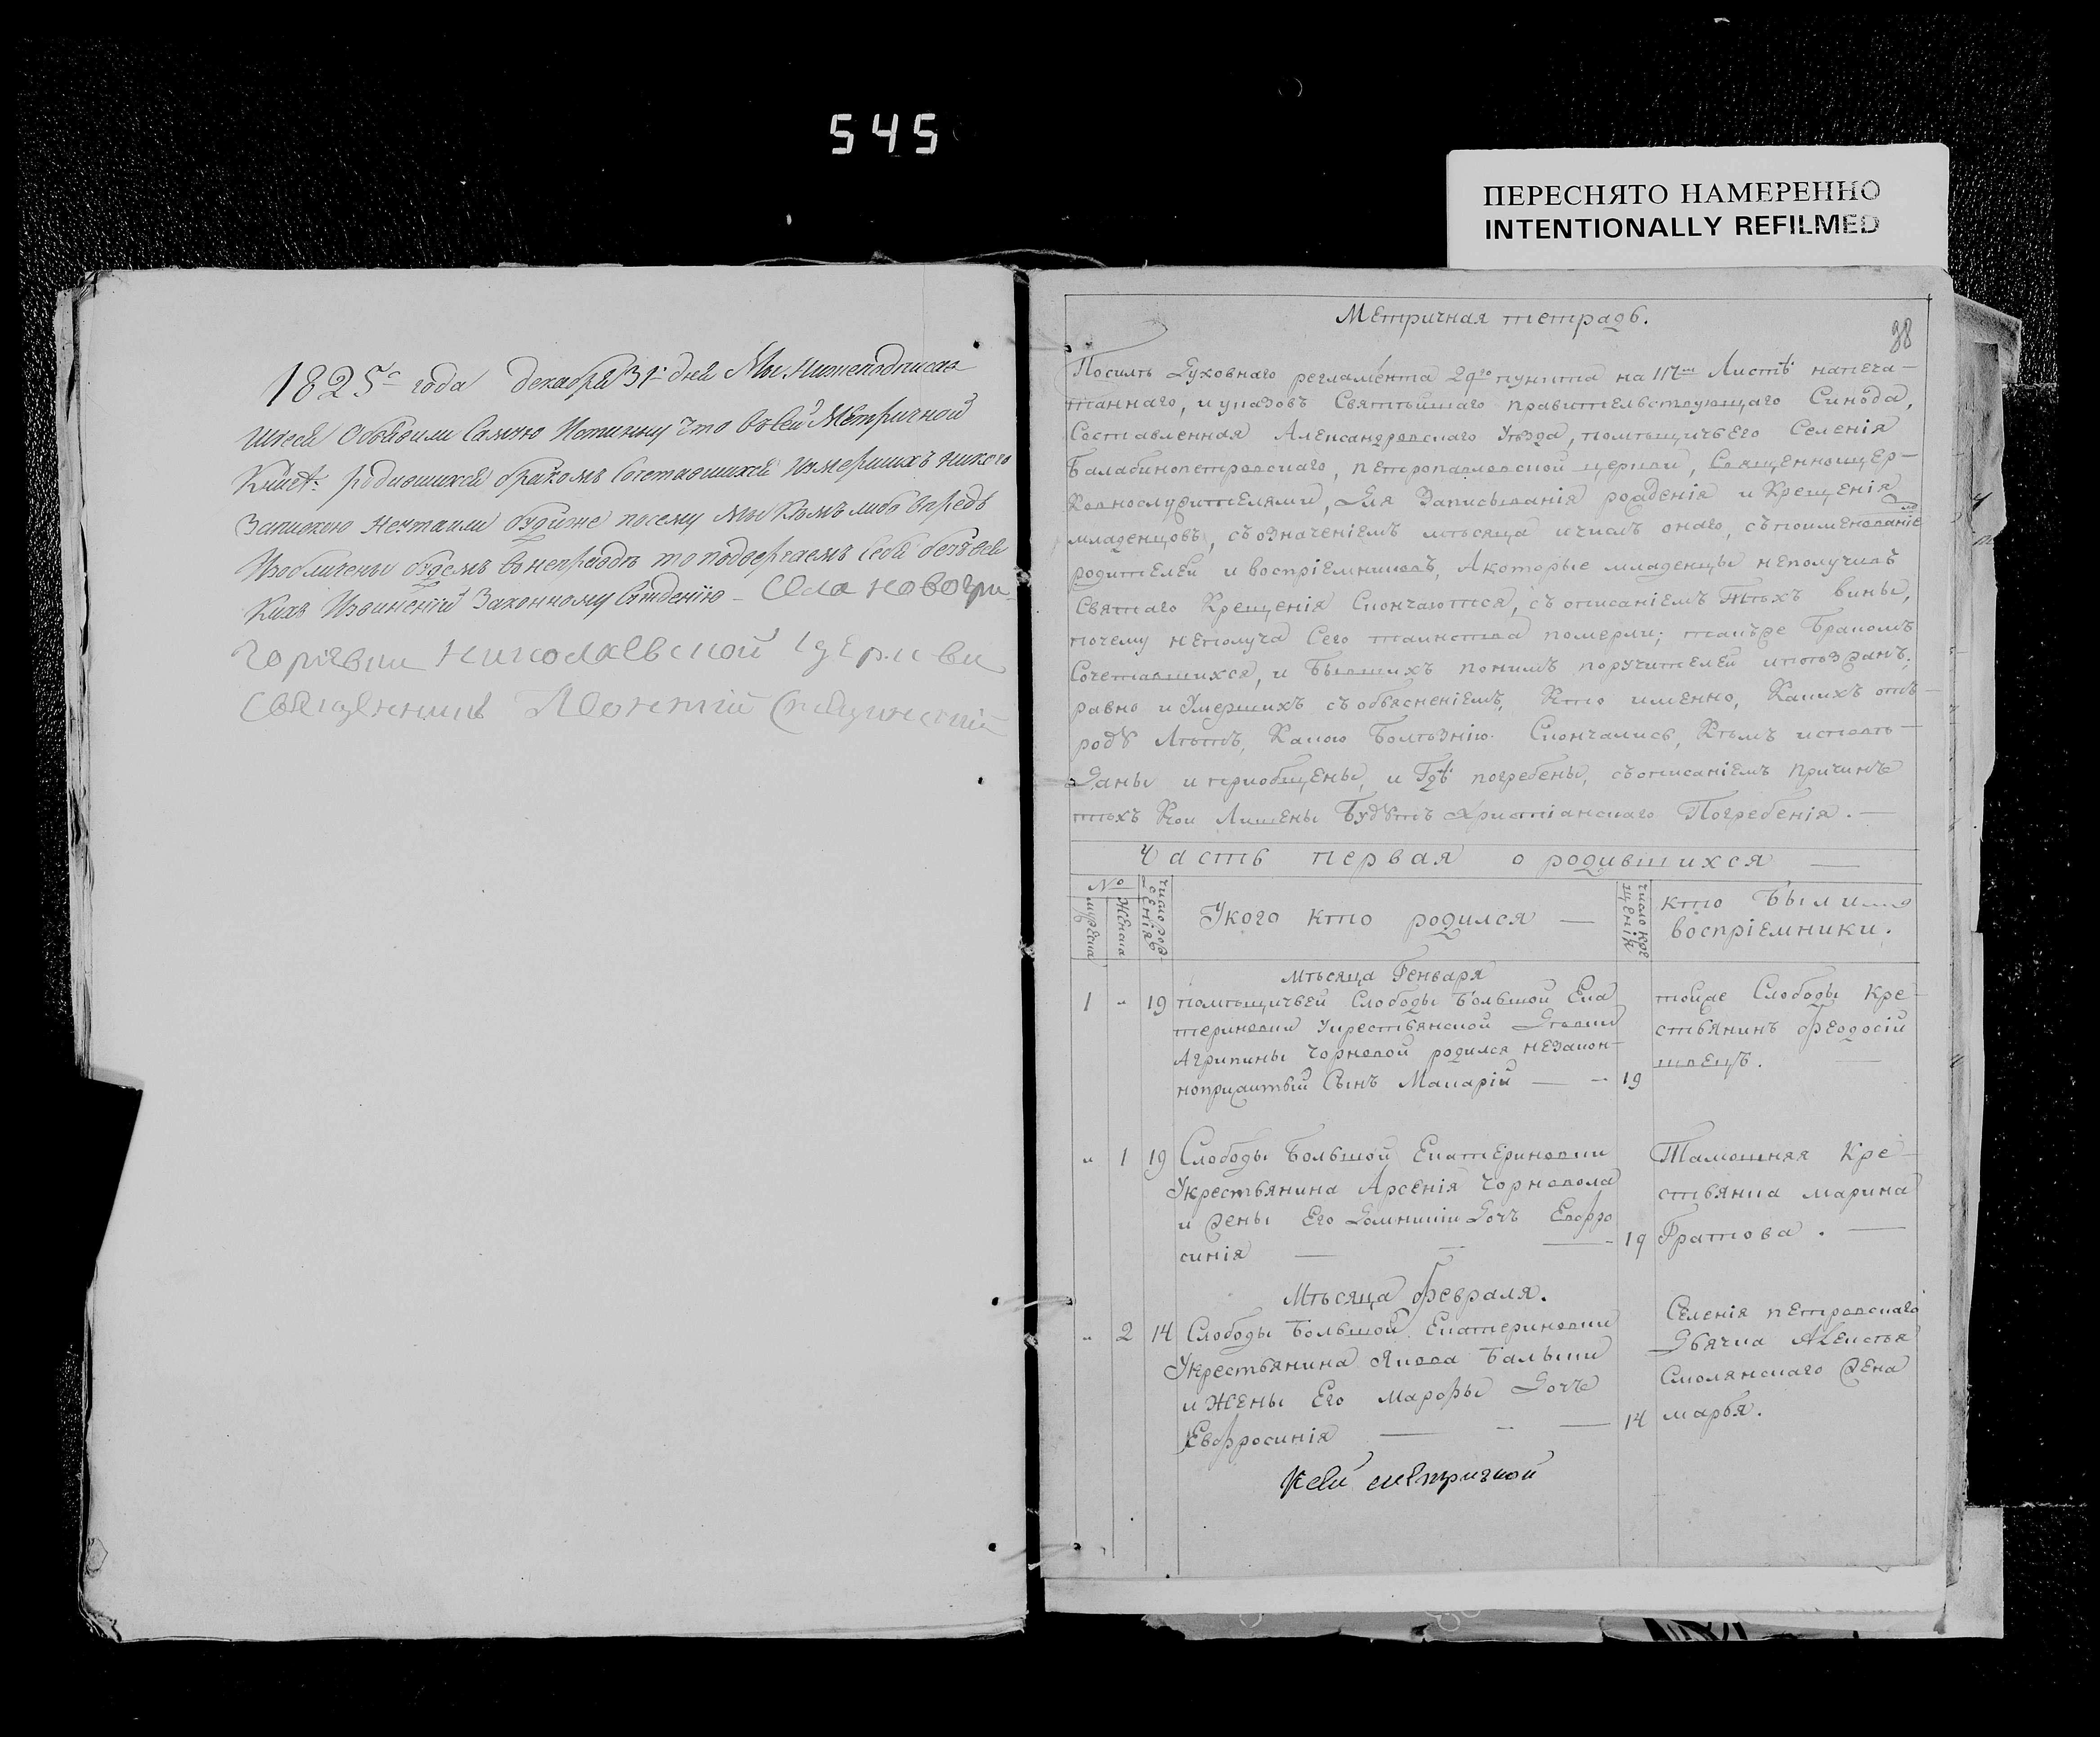 545
ПЕРЕСНЯТО НАМЕРЕННО
INTENTIONALLY REFILMED
1825го года декабря 31 дня Мы Нижеподписав
шіеся Объявили Самую Истинну что въсей Метричной
Книгѣ родившихся бракомъ Сочетавшихся Иумершихъ никого
Запискою Неутаили будиже посему Мы Кѣмъ либо впредь
Изобличены будемъ вонеправдѣ то подвергаемъ Себя безъвся
Кихъ Извиненій Законному Сужденію – Села Новогри
горіевки Николаевской церкви
Священникъ Леонтій
Метричная тетрадь.
38
Посилѣ Духовнаго регламента 29го пункта на 117м Листѣ напеча-
таннаго, и указовъ Святѣйшаго правительствующаго Синода,
Составленная Александровскаго Уѣзда, помѣщичьего Селенія
Балабинопетровскаго, петропавловской церкви, Священноцер-
Ковнослужителями, Для Записыванія рожденія и Крещенія
младенцовъ, съозначеніемъ мѣсяца ичислъ онаго, съпоименованіемъ
родителей и воспріемниковъ, Акоторые младенцы неполучивъ
Святаго Крещенія Скончаются, съописаніемъ тѣхъ вины,
почему неполуча Сего таинства померли; такъже Бракомъ
Сочетавшихся, и бывшихъ понимъ поручителей
равно и Умершихъ съобъясненіемъ, Кто именно, Какихъ отъ-
роду Лѣтъ, Какою Болѣзнію Скончались, Кѣмъ исповѣ-
даны и пріобщены, и Гдѣ погребены, съописаніемъ причинъ
тѣхъ Кои Лишены Будутъ Христіанскаго Погребенія. —
Часть первая о родившихся —
№
мужеска
Женска
число рож
денія
Укого кто родился —
число кре
щенія
кто Были
воспріемники.
мѣсяца Генваря
1 " 19 помѣщичьей Слободы Большой Ека
териновки укрестьянской Дѣвки
Агрипины Чорновой родился незакон-
ноприжитый Сынъ Макарій — 19
тойже Слободы Кре-
стьянинъ Феодосій
швецъ.
" 1 19 Слободы Большой Екатериновки
Укрестьянина Арсенія Чорновола
и жены Его Домникіи Дочь Евфро
синія — 19
Тамошняя Кре-
стьянка марина
Гратова. —
Мѣсяца Февраля.
" 2 14 Слободы Большой Екатериновки
Укрестьянина Якова
и Жены Его Марфы Дочь
Евфросинія — 14
Селенія петровскаго
Дьячка Алексѣя
Смолянскаго жена
марья.
Ксей метричной